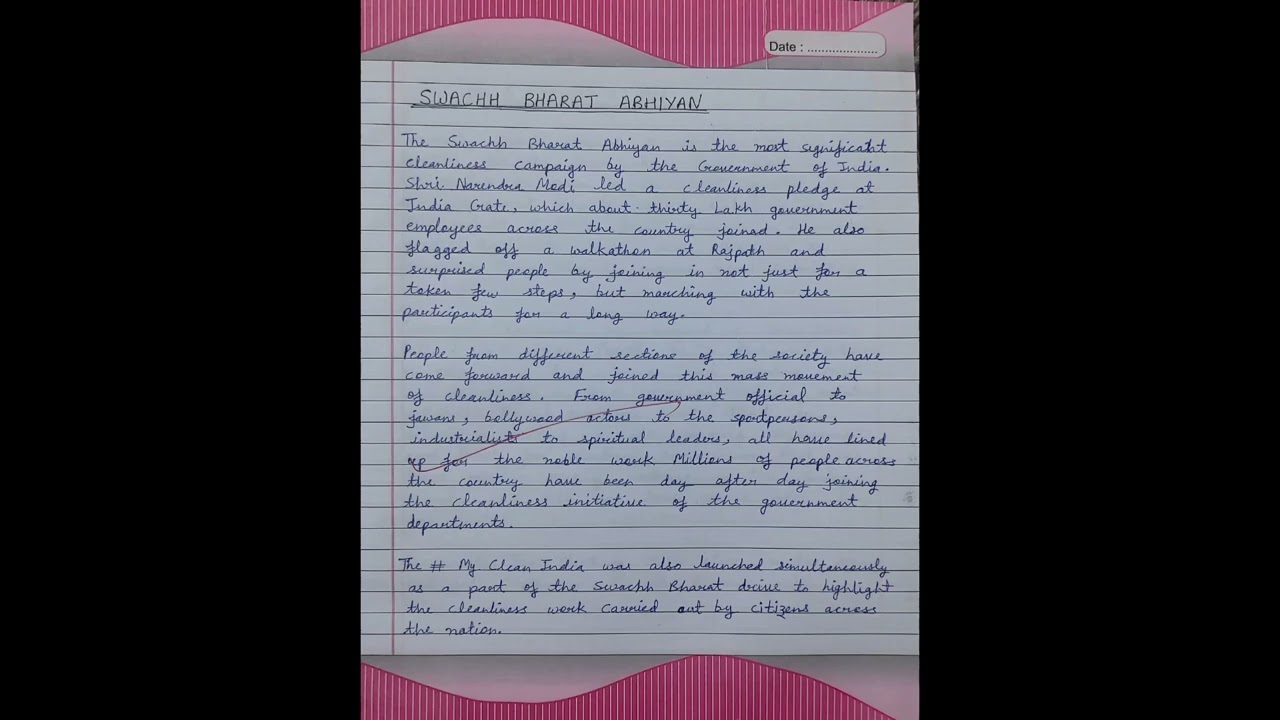 Date : .....................
SWACHH BHARAT ABHIYAN
The Swachh Bharat Abhiyan is the most significant
cleanliness campaign by the Government of India.
Shri. Narendra Modi led a cleanliness pledge at
India Gate, which about thirty Lakh government
employees across the country joinad. He also
flagged off a walkathon at Rajpath and
surprised people by joining in not just for a
token few steps, but marching with the
participants for a long way.
People from different sections of the society have
come forward and joined this mass movement
of cleanliness. From government official to
jawans, bollywood actors to the sportpersons,
industrialists to spiritual leaders, all have lined
up for the noble work Millions of people across
the country have been day after day joining
the cleanliness initiative of the government
departments.
The # My Clean India was also launched simultaneously
as a part of the Swachh Bharat drive to highlight
the cleanliness work carried out by citizens across
the nation.